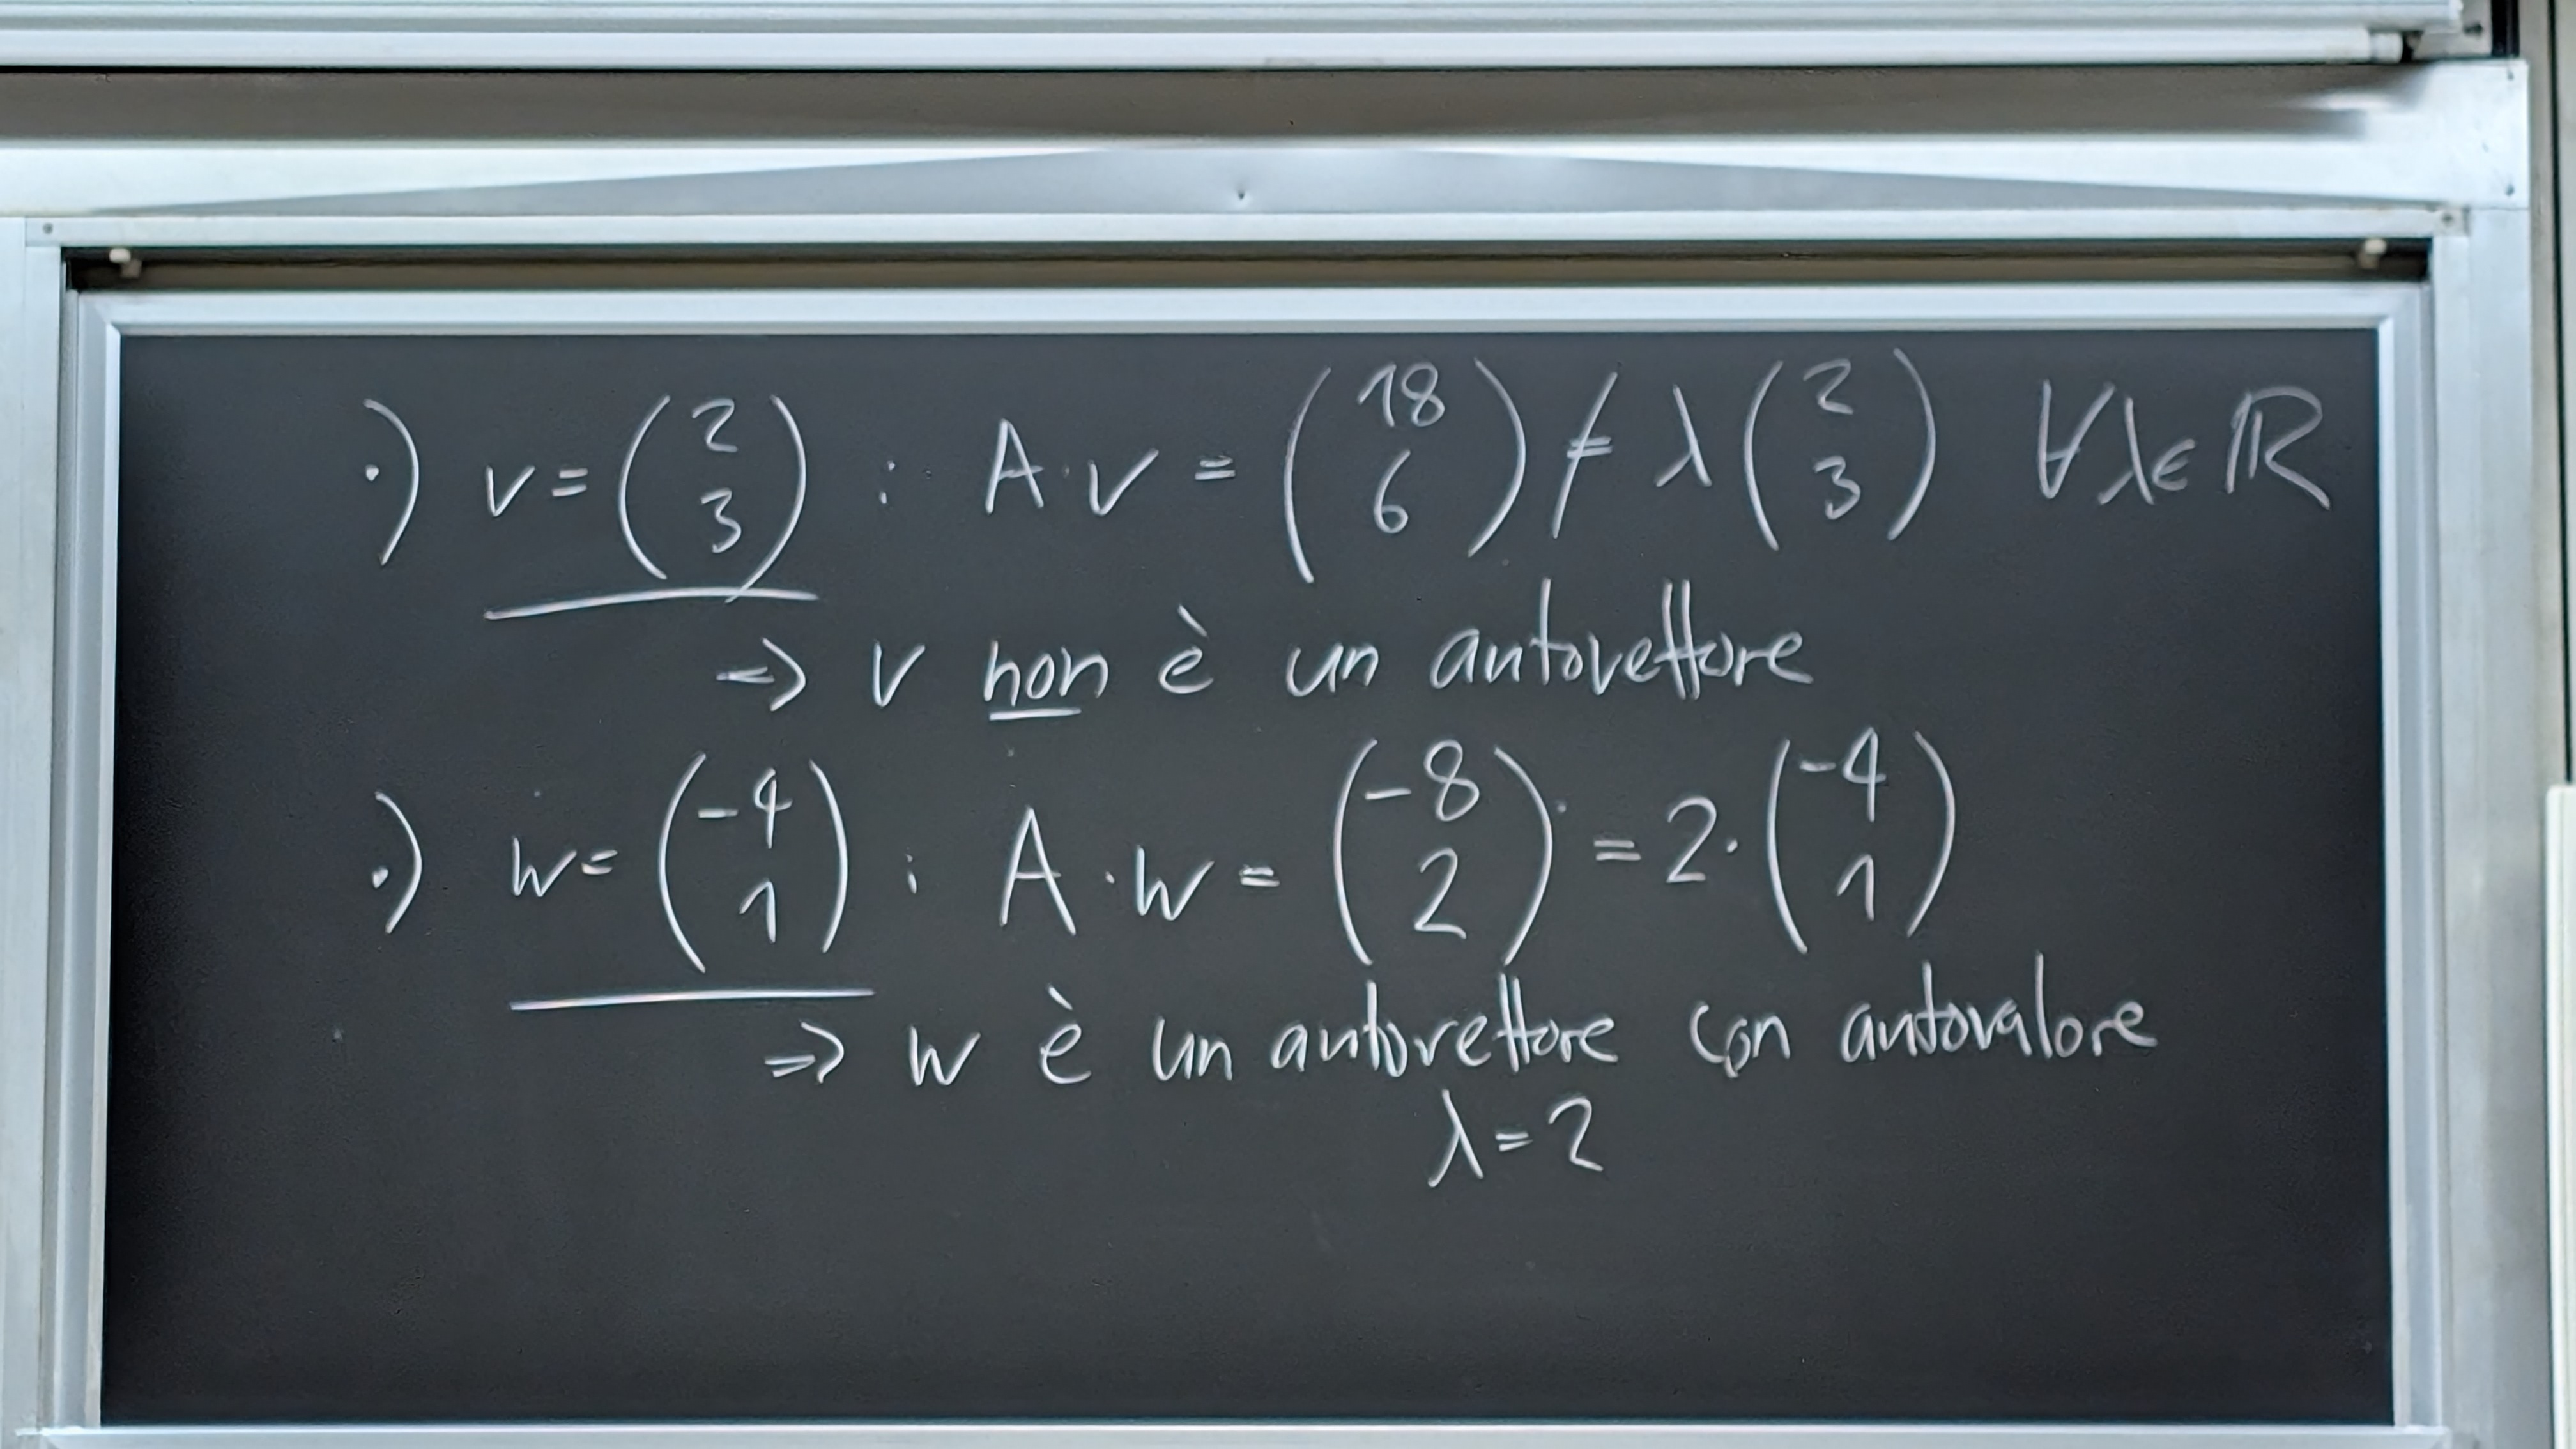 ·) v = (2 3) : A·v = (18 6) ≠ λ (2 3) ∀λ∈ℝ
=> v non è un autovettore
·) w = (-4 1) : A·w = (-8 2) = 2·(-4 1)
=> w è un autovettore con autovalore
λ = 2